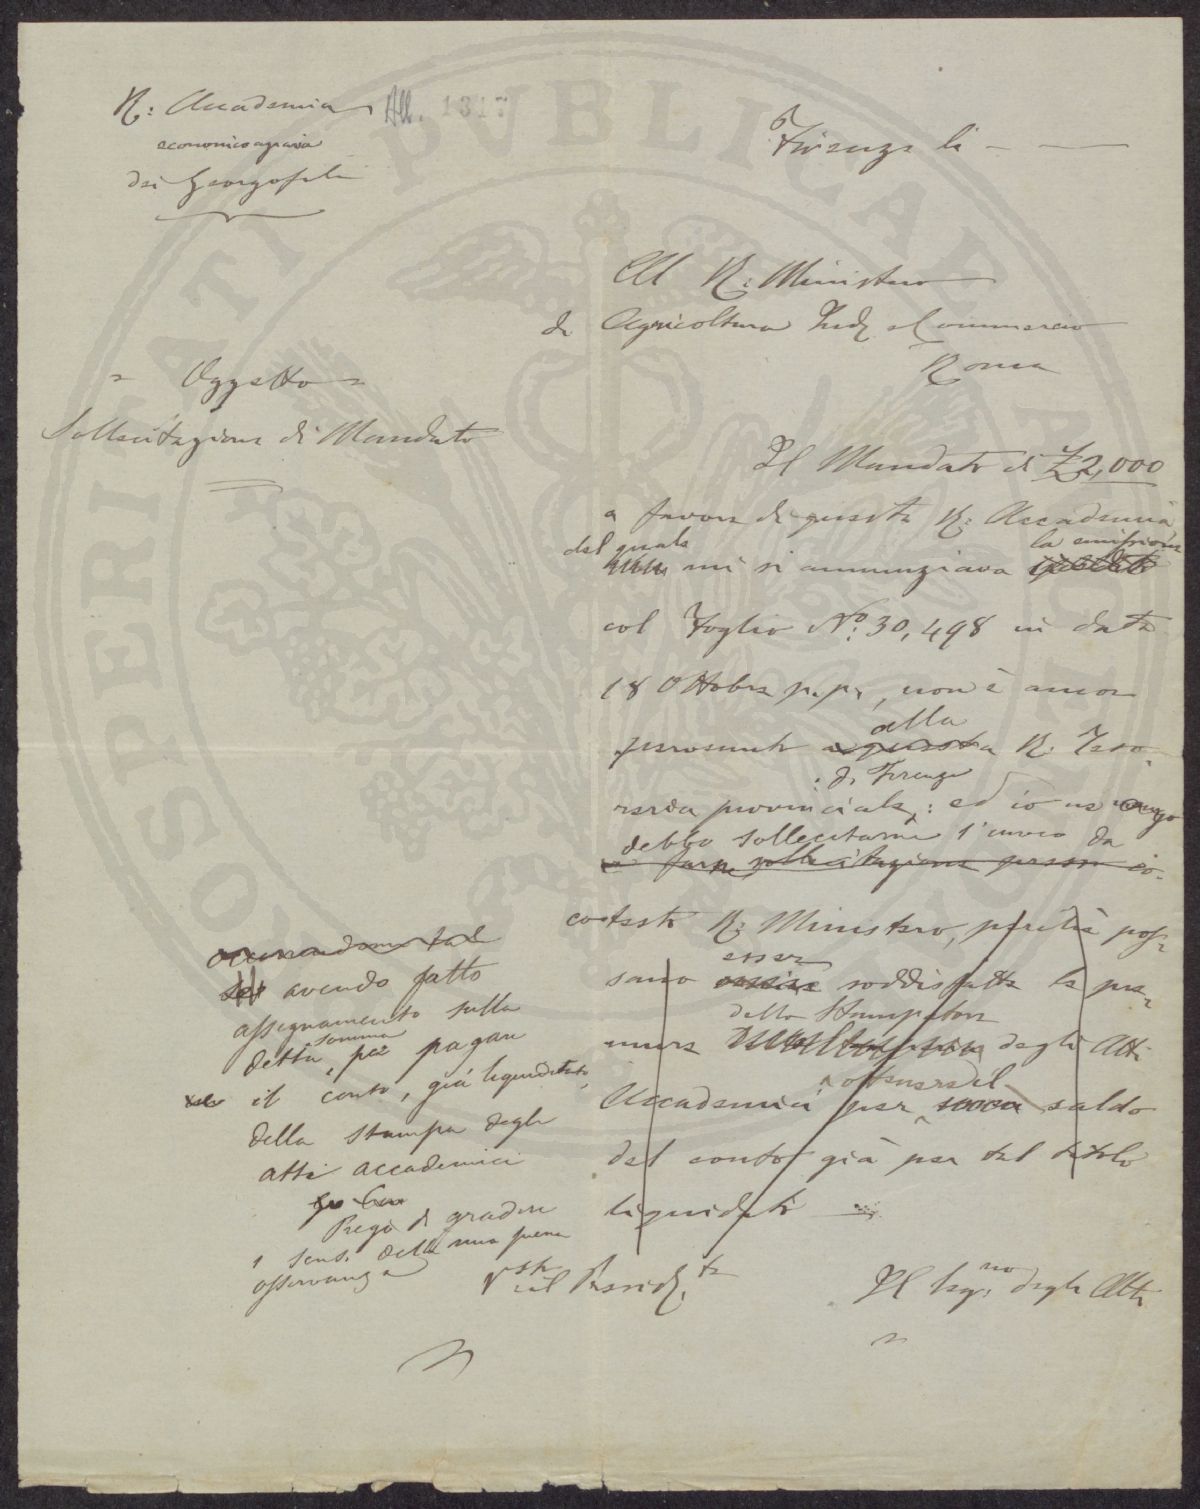 R: Accademia
economico agraria
dei Georgofili
All. 1317
Firenze li
Al R: Ministero
di Agricoltura Ind. e Commercio
Roma
Oggetto
Sollecitazione di Mandato
Il Mandato di £ 2,000
a favore di questa R: Accademia
del quale la emissione
mi si annunziava spedito
col Foglio N°: 30,498 in data
18 Ottobre p.p., non è ancor
alla
pervenuto a questa R. Teso-
di Firenze
reria provinciale; ed io ne vengo
debbo sollecitarne l'invio da
a farne sollecitazione presso co-
cotesto R: Ministero, perchè pos-
esser
sano essere soddisfatte le pre-
dello Stampatore
mure degli Atti
ottenere il
Accademici per saldo
del conto già per tal titolo
liquidato
avendo fatto
assegnamento sulla
somma
detta, per pagare
il conto, già liquidato,
della stampa degli
atti accademici
Prego di gradire
i sensi della mia piena
osservanza
Vsto il Presidte
Il Segrio degli Atti
PVBLICAE
PROSPERITATI